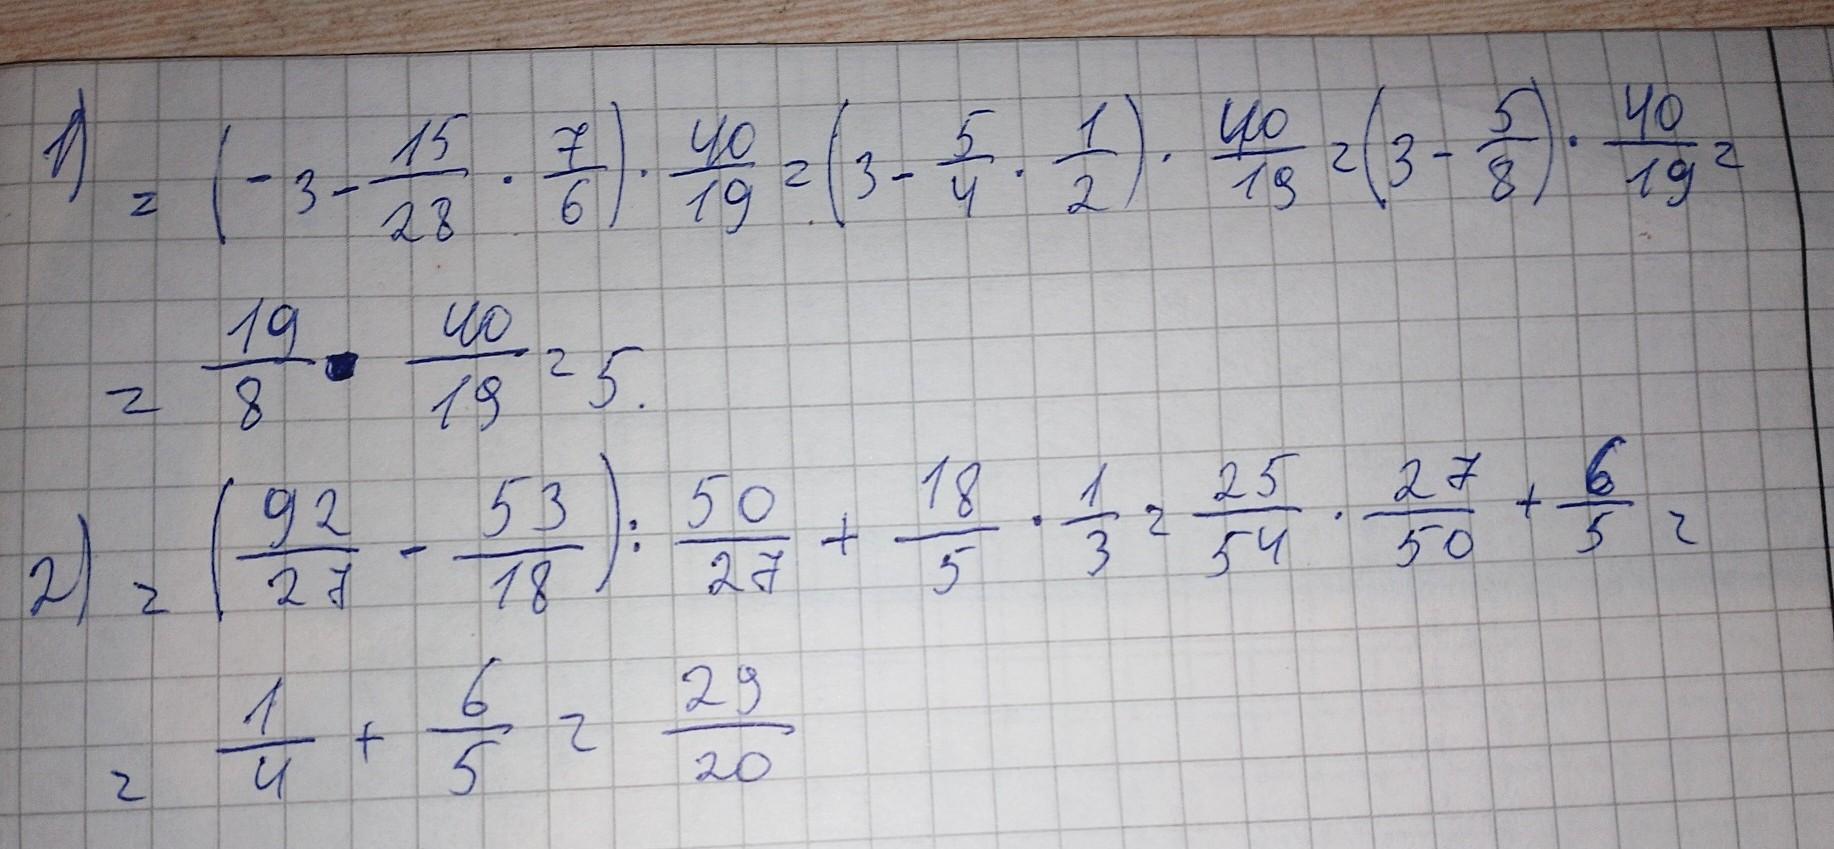 1) = (-3 - 15/28 · 7/6) · 40/19 = (3 - 5/4 · 1/2) · 40/19 = (3 - 5/8) · 40/19 =
= 19/8 · 40/19 = 5.
2) = (92/27 - 53/18) : 50/27 + 18/5 · 1/3 = 25/54 · 27/50 + 6/5 =
= 1/4 + 6/5 = 29/20